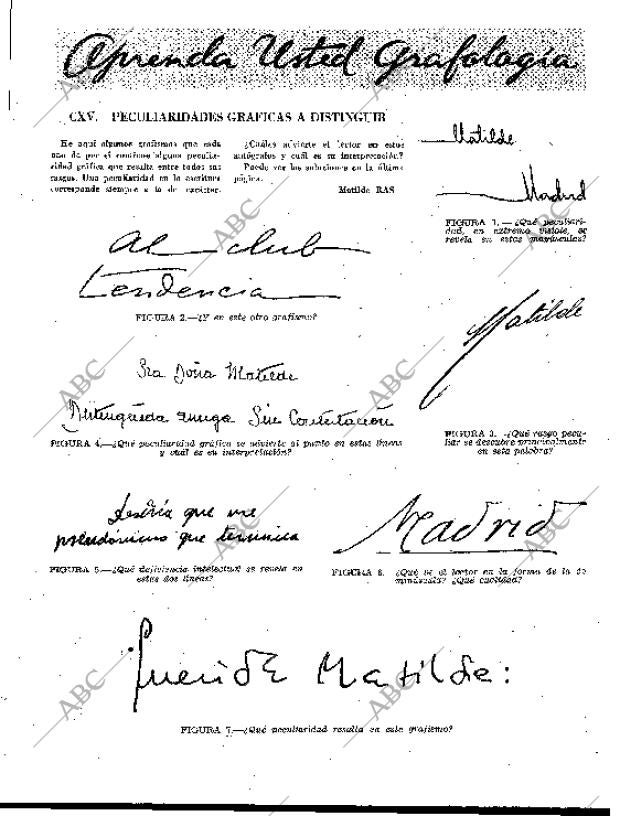 Aprenda Usted Grafología
CXV. PECULIARIDADES GRAFICAS A DISTINGUIR
He aquí algunos grafismos que cada
uno de por sí contiene alguna peculia-
ridad gráfica que resalta entre todos sus
rasgos. Una peculiaridad en la escritura
corresponde siempre a la de carácter.
¿Cuáles advierte el lector en estos
autógrafos y cuál es su interpretación?
Puede ver las soluciones en la última
página.
Matilde RAS
Matilde
Madrid
FIGURA 1.—¿Qué peculiari-
dad, en extremo visible, se
revela en estas mayúsculas?
al club
Tendencia
FIGURA 2.—¿Y en este otro grafismo?
Matilde
FIGURA 3. —¿Qué rasgo pecu-
liar se descubre principalmente
en esta palabra?
Sra Doña Matilde
Distinguida amiga Sin Contestación
FIGURA 4.—¿Qué peculiaridad gráfica se advierte al punto en estas líneas
y cuál es su interpretación?
desería que me
pseudónimo que termina
FIGURA 5.—¿Qué deficiencia intelectual se revela en
estas dos líneas?
Madrid
FIGURA 6. ¿Qué ve el lector en la forma de la de
minúscula? ¿Qué cualidad?
Querida Matilde:
FIGURA 7.—¿Qué peculiaridad resalta en este grafismo?
ABC
ABC
ABC
ABC
ABC
ABC
ABC
ABC
ABC
ABC
ABC
ABC